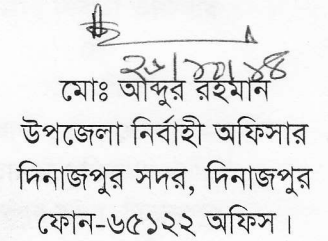 মোঃ আব্দুর রহমান
উপজেলা নির্বাহী অফিসার
দিনাজপুর সদর, দিনাজপুর
ফোন-৬৫১২২ অফিস।